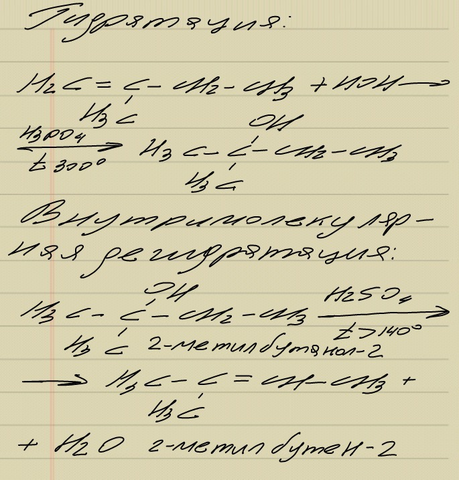 Гидратация:
H2C = C - CH2 - CH3 + HOH →
H3C
OH
H3PO4
t 300°
H3C - C - CH2 - CH3
H3C
Внутримолекуляр-
ная дегидратация:
OH
H3C - C - CH2 - CH3
H2SO4
t > 140°
H3C 2-метилбутанол-2
→ H3C - C = CH - CH3 +
H3C
+ H2O 2-метилбутен-2